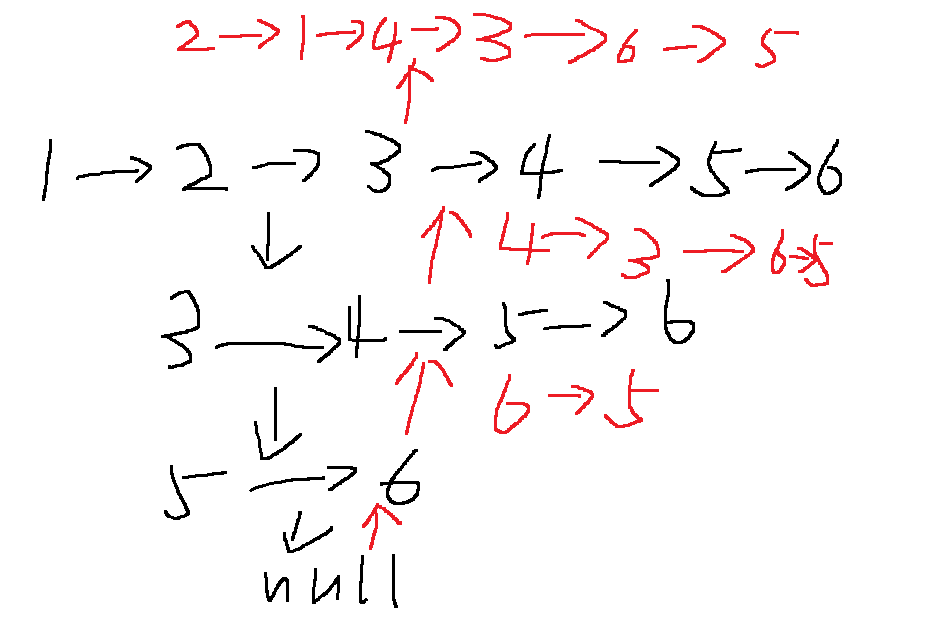 2→1→4→3→6→5
↑
1→2→3→4→5→6
↓ ↑ 4→3→6→5
3→4→5→6
↓ ↑ 6→5
5→6
↓ ↑
null